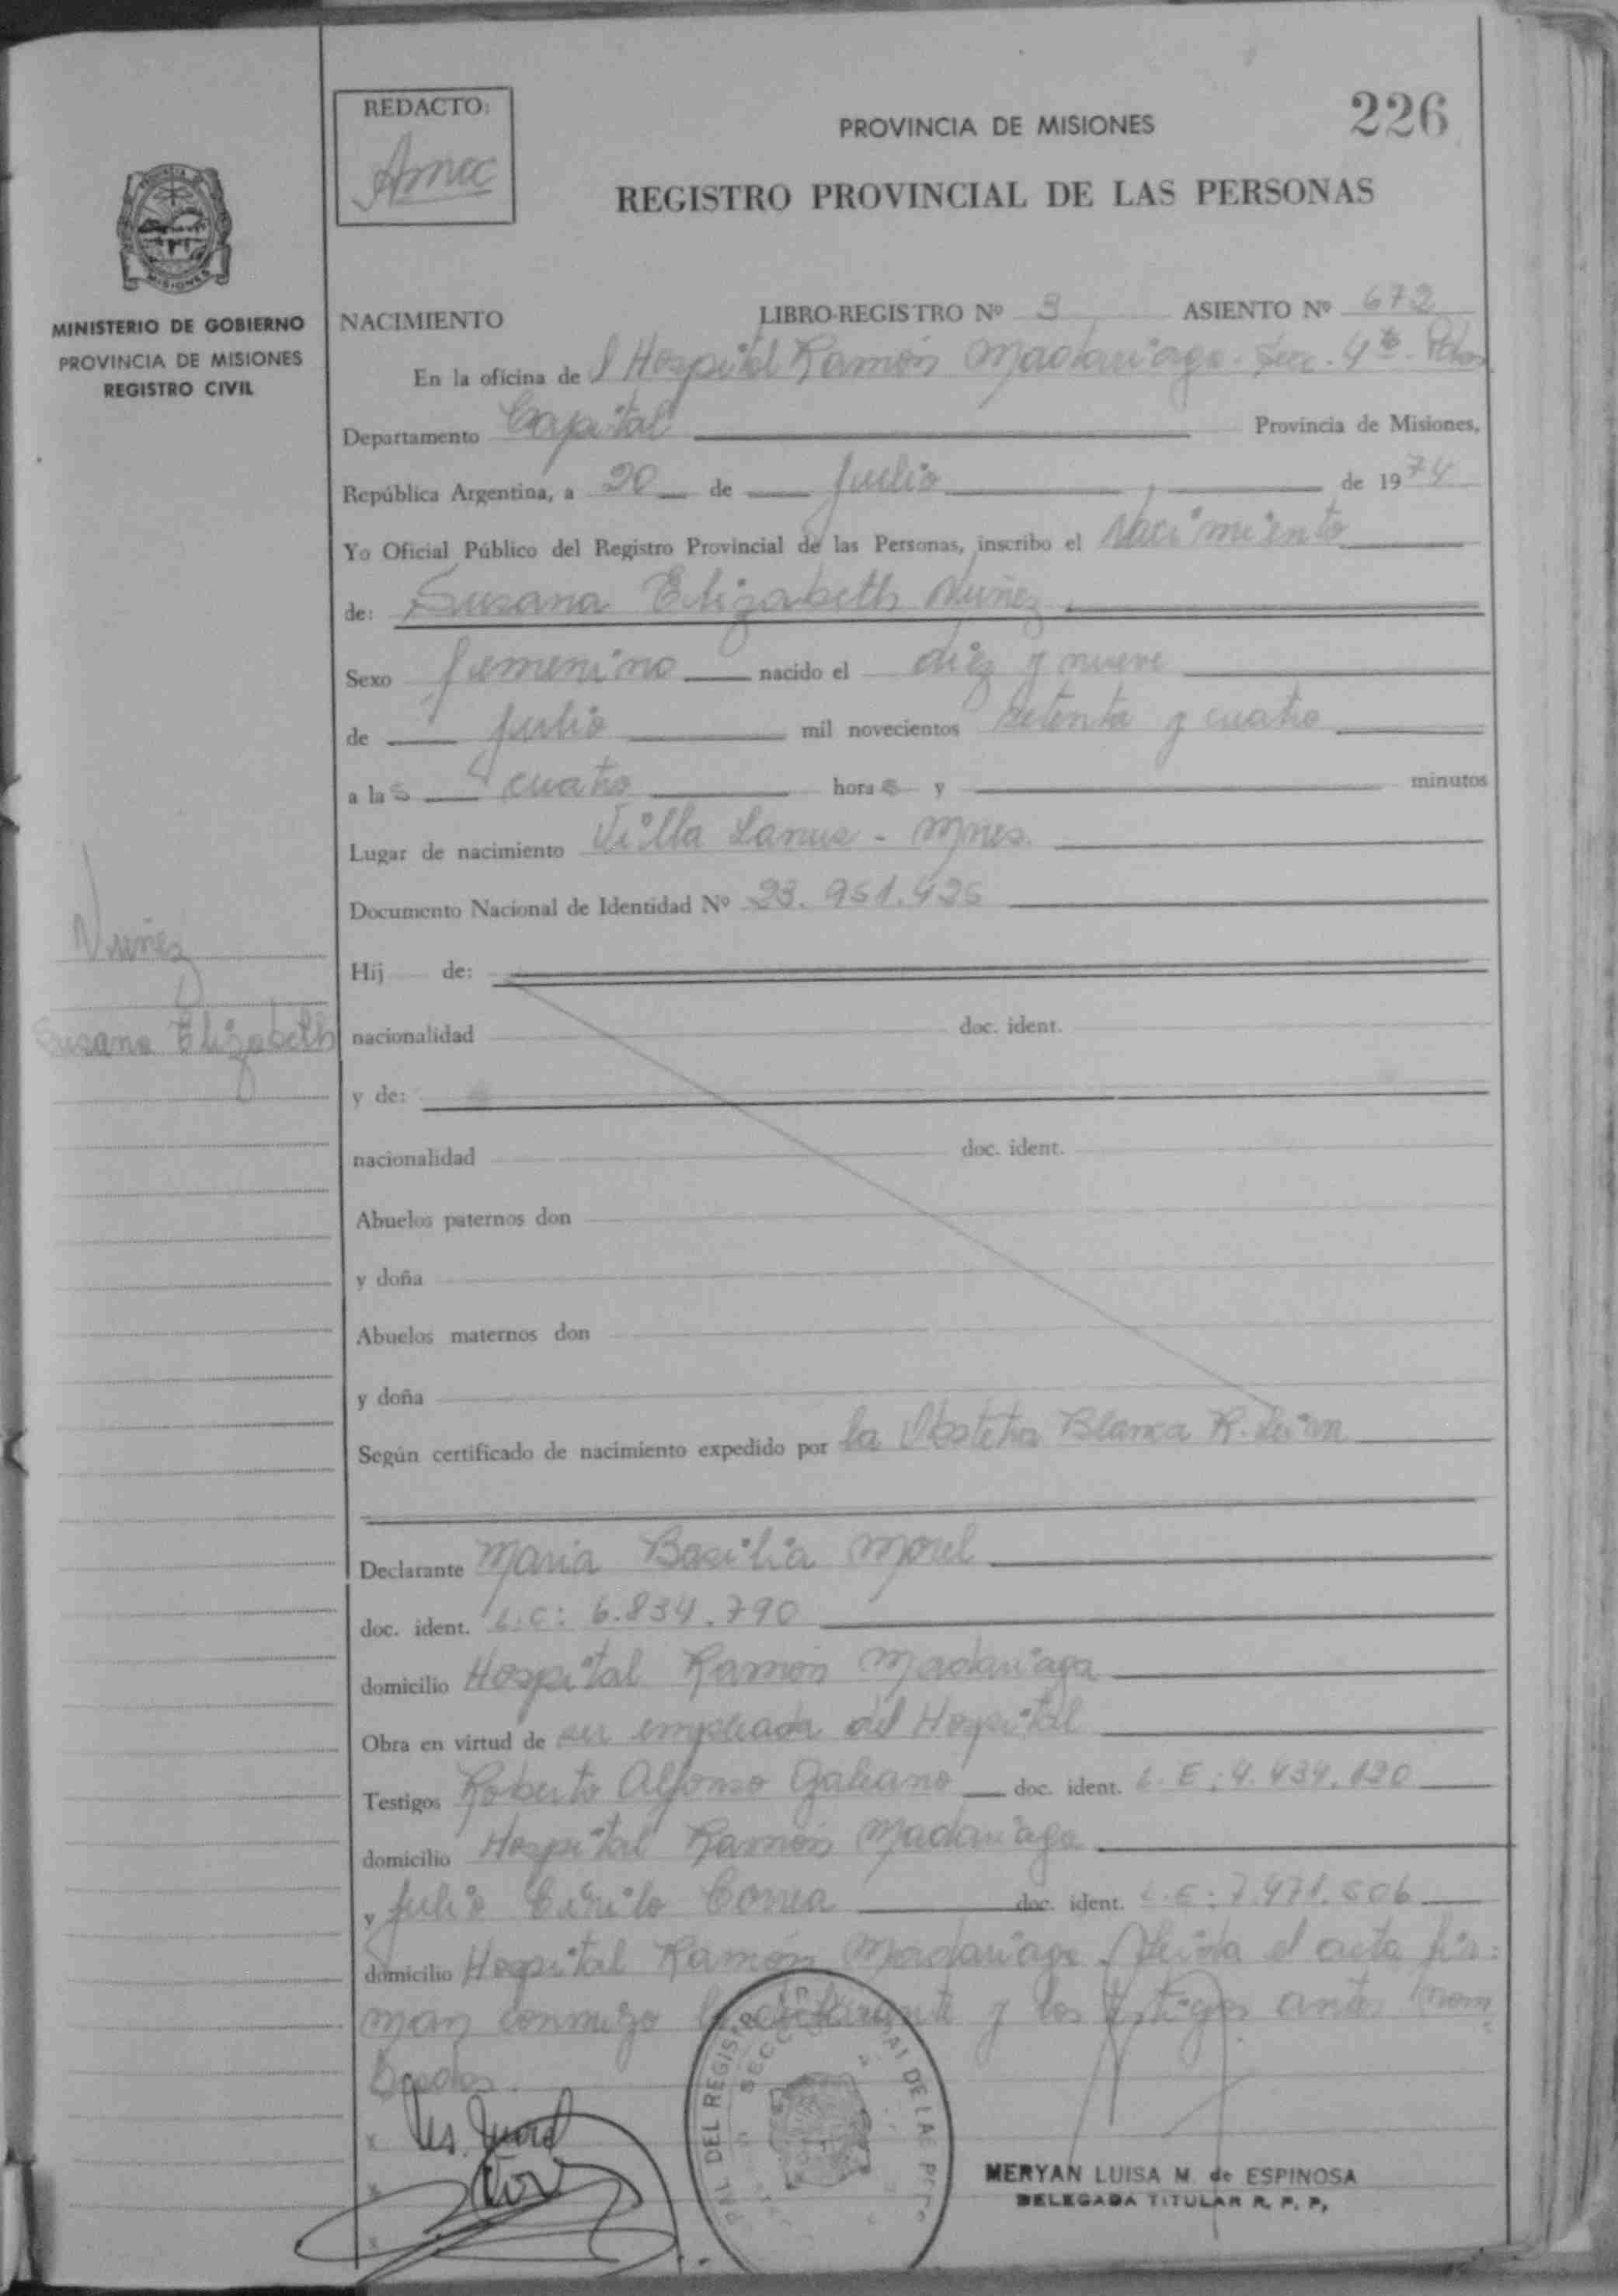 REDACTO:
PROVINCIA DE MISIONES
226
REGISTRO PROVINCIAL DE LAS PERSONAS
MISIONES
MINISTERIO DE GOBIERNO
PROVINCIA DE MISIONES
REGISTRO CIVIL
NACIMIENTO LIBRO-REGISTRO Nº 3 ASIENTO Nº 672
En la oficina de l Hospital Ramón Madariaga - Sec. 4ta - Pdas
Departamento Capital Provincia de Misiones,
República Argentina, a 20 de Julio de 1974
Yo Oficial Público del Registro Provincial de las Personas, inscribo el Nacimiento
de: Susana Elizabeth Nuñez
Sexo femenino nacido el diez y nueve
de Julio mil novecientos setenta y cuatro
a las cuatro horas y minutos
Lugar de nacimiento Villa Lanus - Mnes.
Documento Nacional de Identidad Nº 23.951.425
Nuñez
Susana Elizabeth
Hij de:
nacionalidad doc. ident.
y de:
nacionalidad doc. ident.
Abuelos paternos don
y doña
Abuelos maternos don
y doña
Según certificado de nacimiento expedido por la Obstetra Blanca R.
Declarante Maria Basilia Morel
doc. ident. L.C: 6.834.790
domicilio Hospital Ramón Madariaga
Obra en virtud de ser empleada del Hospital
Testigos Roberto Alfonso Galeano doc. ident. L.E: 4.434.120
domicilio Hospital Ramón Madariaga
y Julio Cirilo Correa doc. ident. L.E: 7.471.506
domicilio Hospital Ramón Madariaga. Leida el acta fir=
man conmigo la declarante y los testigos antes nom=
brados.
MERYAN LUISA M. de ESPINOSA
DELEGADA TITULAR R. P. P.